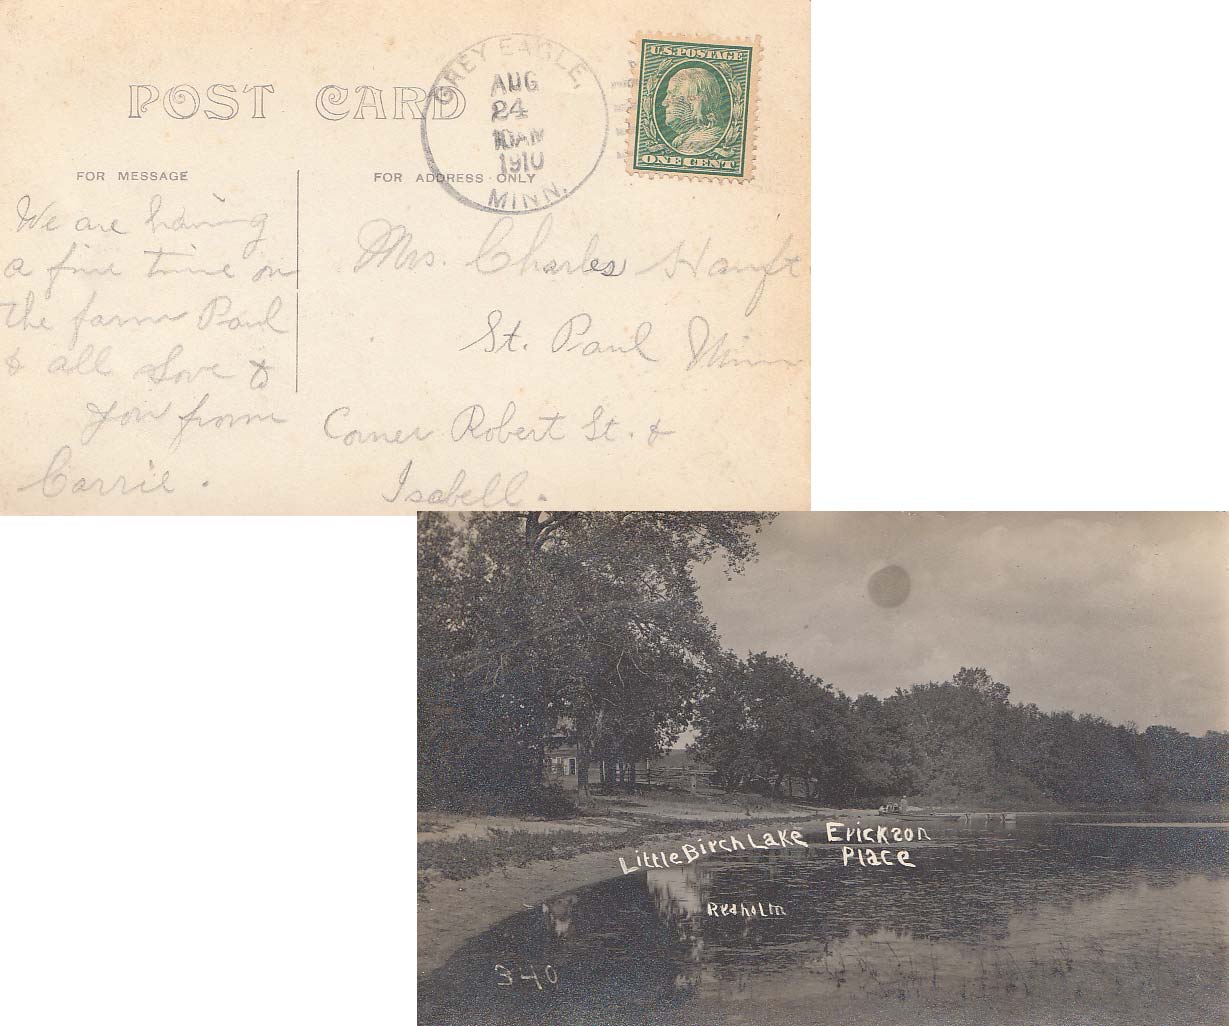 POST CARD
GREY EAGLE,
AUG
24
10 AM
1910
MINN.
U.S. POSTAGE
ONE CENT
FOR MESSAGE
FOR ADDRESS ONLY
We are having
a fine time on
the farm Paul
& all Love to
you from
Carrie.
Mrs. Charles Haupt
St. Paul Minn
Corner Robert St. &
Isabell.
Little Birch Lake Erickson
Place
Redholm
340